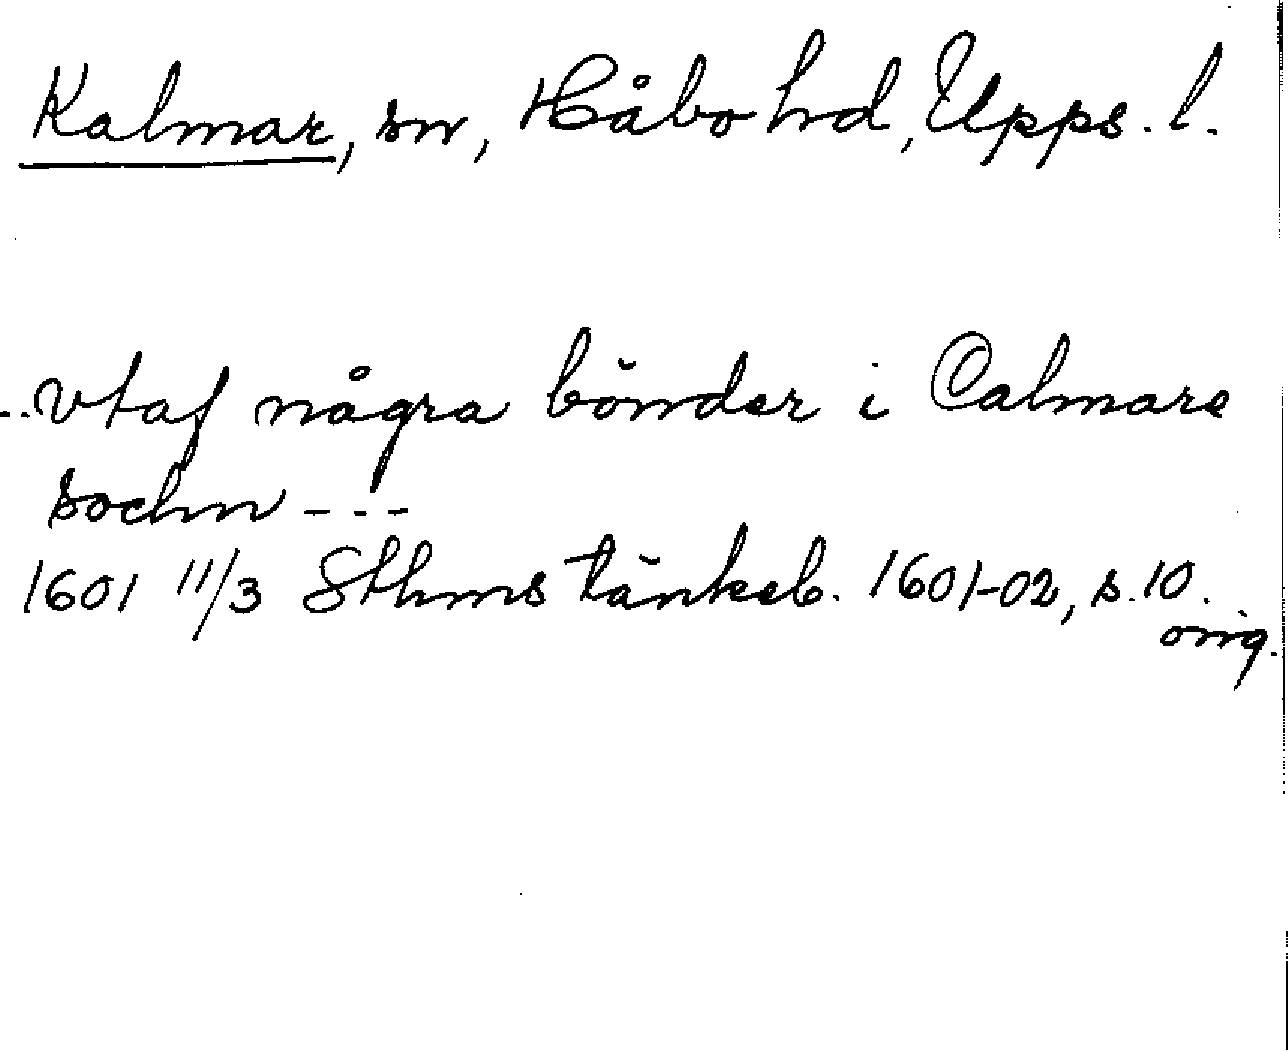 Kalmar, sn, Håbo hd, Upps. l.
--vtaf några bönder i Calmare
sochn ---
1601 11/3 Sthms tänkeb. 1601-02, s. 10.
orig.